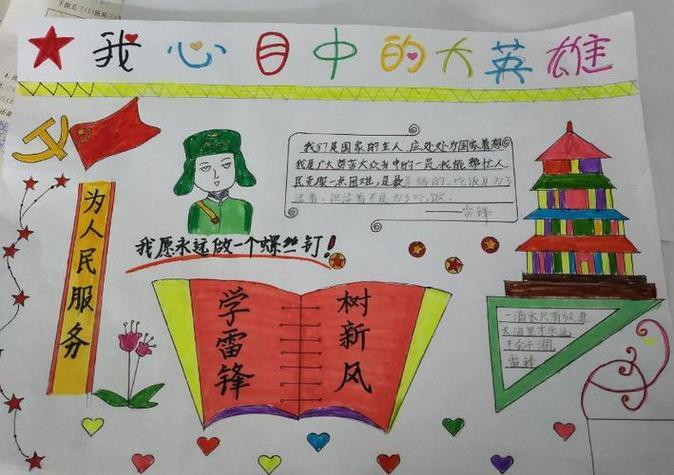 我心目中的大英雄
为人民服务
我们是国家的主人,应处处为国家着想
我是广大劳苦大众当中的一员,我能帮忙人
民克服一点困难,是最幸福的。吃饭是为了
活着,但活着不是为了吃饭。
——雷锋
我愿永远做一个螺丝钉!
学雷锋
树新风
一滴水只有放进
大海里才永远
不会干涸
雷锋